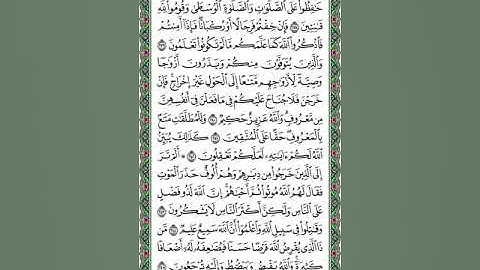 حَٰفِظُوا۟ عَلَى ٱلصَّلَوَٰتِ وَٱلصَّلَوٰةِ ٱلْوُسْطَىٰ وَقُومُوا۟ لِلَّهِ
قَٰنِتِينَ ٢٣٨ فَإِنْ خِفْتُمْ فَرِجَالًا أَوْ رُكْبَانًا فَإِذَآ أَمِنتُمْ
فَٱذْكُرُوا۟ ٱللَّهَ كَمَا عَلَّمَكُم مَّا لَمْ تَكُونُوا۟ تَعْلَمُونَ ٢٣٩
وَٱلَّذِينَ يُتَوَفَّوْنَ مِنكُمْ وَيَذَرُونَ أَزْوَٰجًا
وَصِيَّةً لِّأَزْوَٰجِهِم مَّتَٰعًا إِلَى ٱلْحَوْلِ غَيْرَ إِخْرَاجٍ فَإِنْ
خَرَجْنَ فَلَا جُنَاحَ عَلَيْكُمْ فِى مَا فَعَلْنَ فِىٓ أَنفُسِهِنَّ
مِن مَّعْرُوفٍ وَٱللَّهُ عَزِيزٌ حَكِيمٌ ٢٤٠ وَلِلْمُطَلَّقَٰتِ مَتَٰعٌۢ
بِٱلْمَعْرُوفِ حَقًّا عَلَى ٱلْمُتَّقِينَ ٢٤١ كَذَٰلِكَ يُبَيِّنُ
ٱللَّهُ لَكُمْ ءَايَٰتِهِۦ لَعَلَّكُمْ تَعْقِلُونَ ٢٤٢ ۞ أَلَمْ تَرَ
إِلَى ٱلَّذِينَ خَرَجُوا۟ مِن دِيَٰرِهِمْ وَهُمْ أُلُوفٌ حَذَرَ ٱلْمَوْتِ
فَقَالَ لَهُمُ ٱللَّهُ مُوتُوا۟ ثُمَّ أَحْيَٰهُمْ إِنَّ ٱللَّهَ لَذُو فَضْلٍ
عَلَى ٱلنَّاسِ وَلَٰكِنَّ أَكْثَرَ ٱلنَّاسِ لَا يَشْكُرُونَ ٢٤٣
وَقَٰتِلُوا۟ فِى سَبِيلِ ٱللَّهِ وَٱعْلَمُوٓا۟ أَنَّ ٱللَّهَ سَمِيعٌ عَلِيمٌ ٢٤٤ مَّن
ذَا ٱلَّذِى يُقْرِضُ ٱللَّهَ قَرْضًا حَسَنًا فَيُضَٰعِفَهُۥ لَهُۥٓ أَضْعَافًا
كَثِيرَةً وَٱللَّهُ يَقْبِضُ وَيَبْصُۜطُ وَإِلَيْهِ تُرْجَعُونَ ٢٤٥